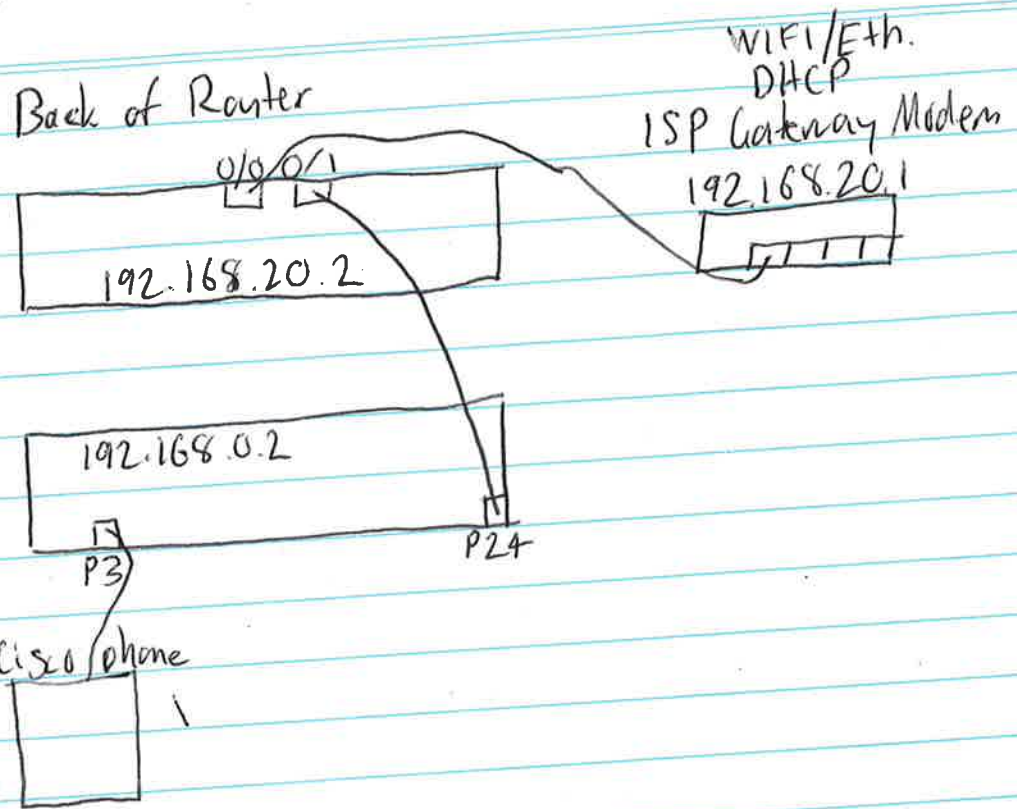 WIFI/Eth.
DHCP
ISP Gateway Modem
192.168.20.1
Back of Router
0/0 0/1
192.168.20.2
192.168.0.2
P3
P24
Cisco phone